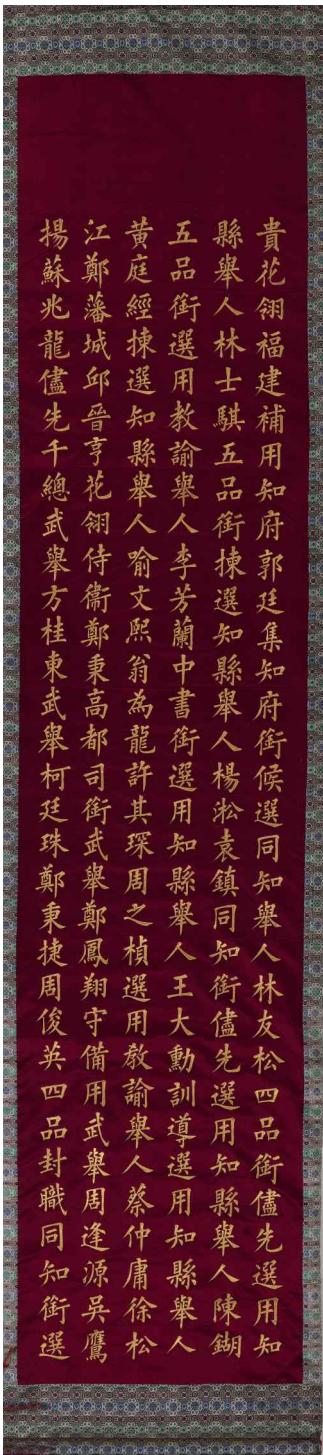 貴花翎福建補用知府郭廷集知府銜候選同知舉人林友松四品銜儘先選用知
縣舉人林士騏五品銜揀選知縣舉人楊淞袁鎮同知銜儘先選用知縣舉人陳鍸
五品銜選用教諭舉人李芳蘭中書銜選用知縣舉人王大勳訓導選用知縣舉人
黃庭經揀選知縣舉人喻文熙翁為龍許其琛周之楨選用教諭舉人蔡仲庸徐松
江鄭藩城邱晉亨花翎侍衞鄭秉高都司銜武舉鄭鳳翔守備用武舉周逢源吳鷹
揚蘇兆龍儘先千總武舉方桂東武舉柯廷珠鄭秉捷周俊英四品封職同知銜選